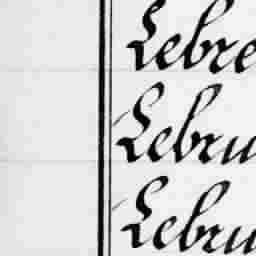 Lebre
Lebru
Lebru